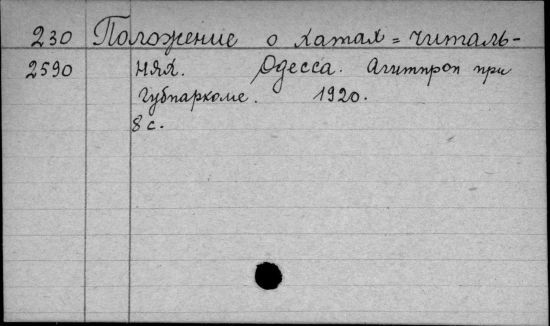 230 Положение о хатах=читаль-
2590 нях. Одесса. Агитпроп при
Губпаркоме. 1920.
8 с.